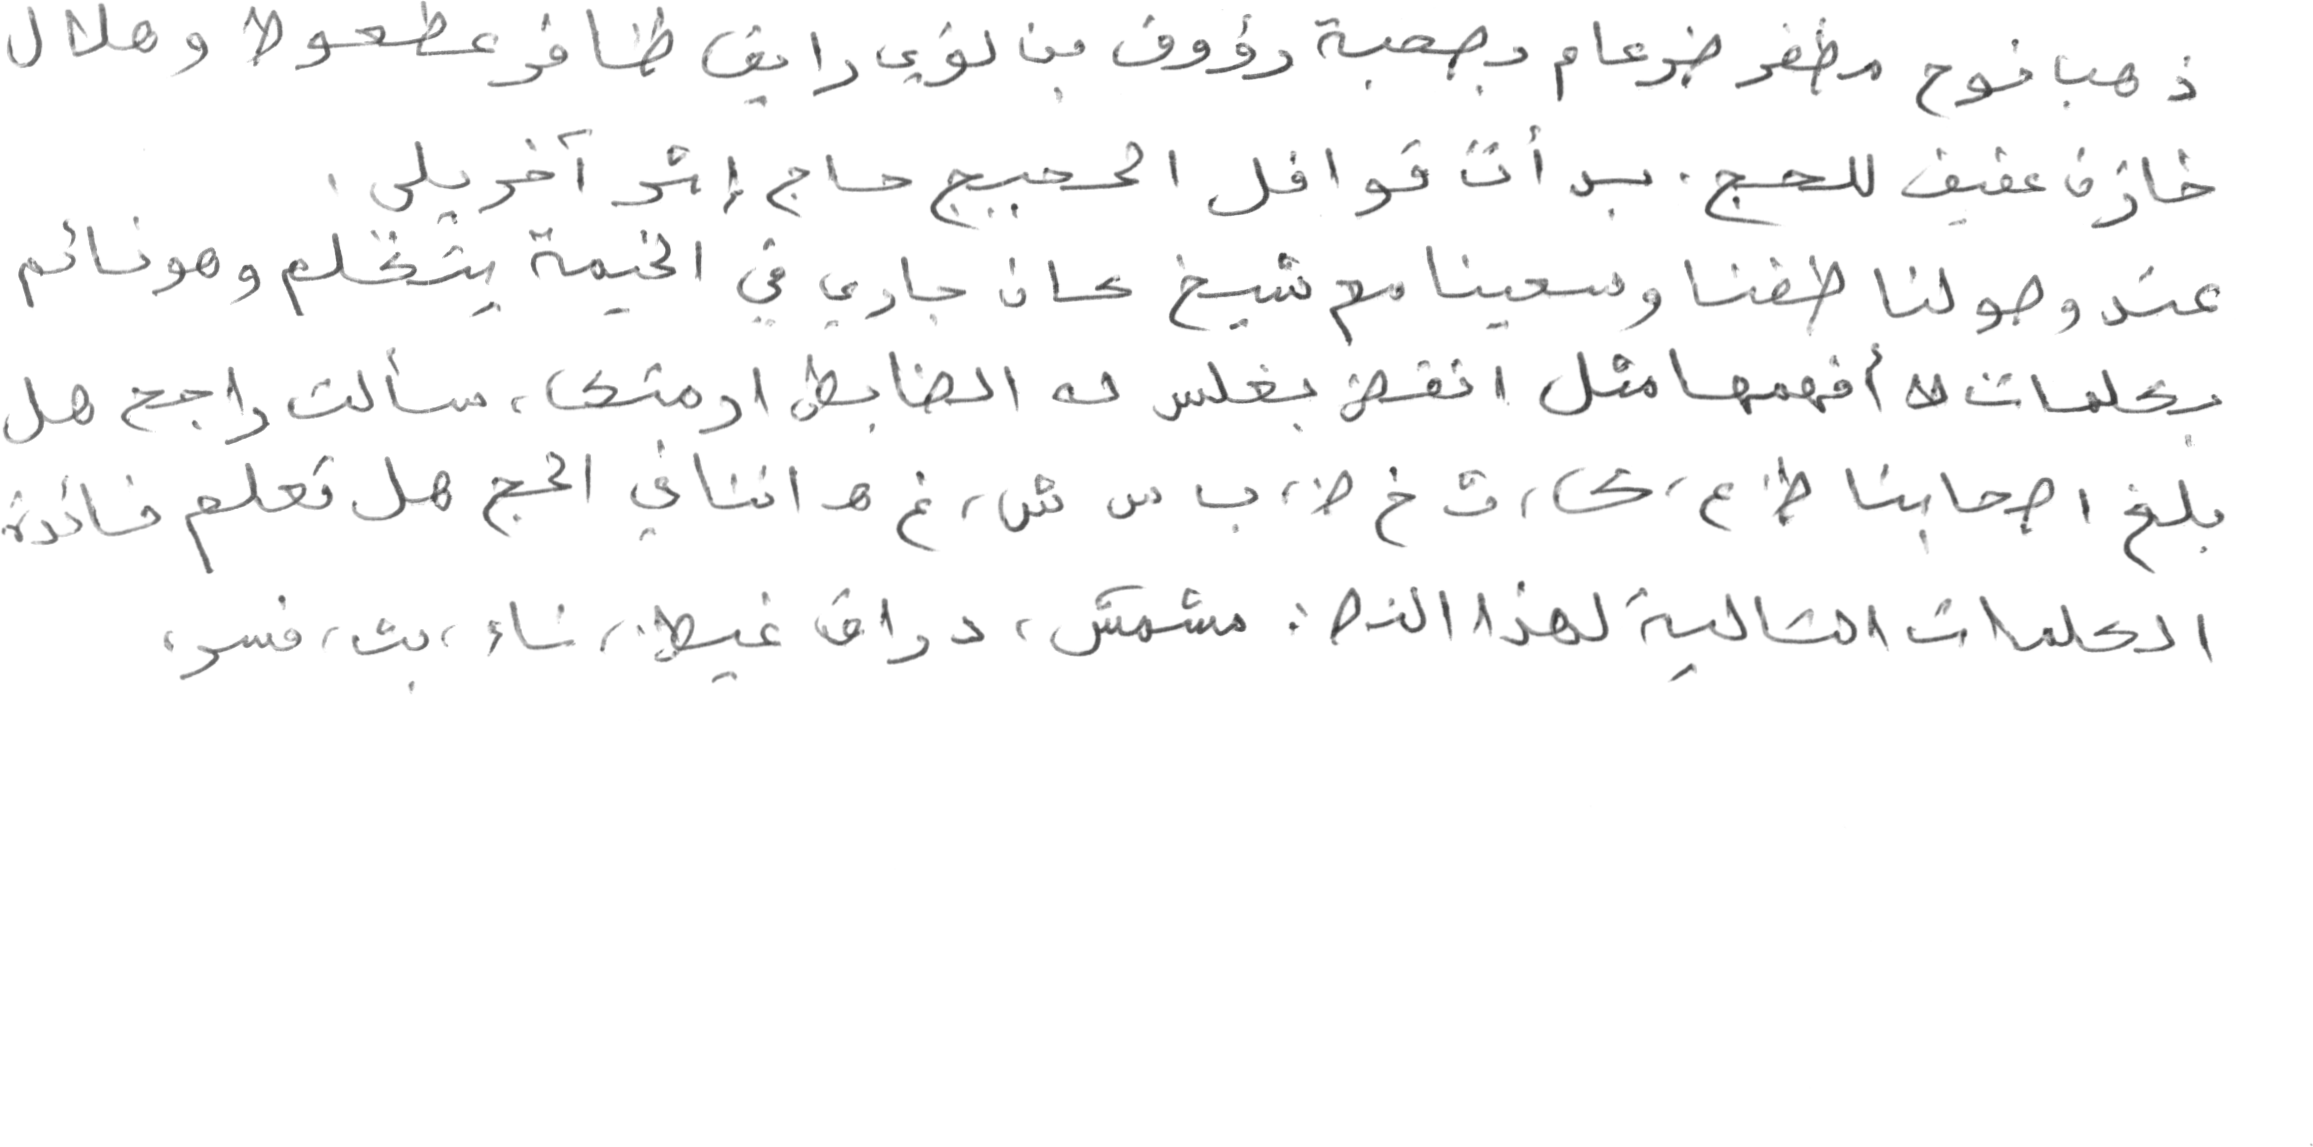 ذهب نوح مظفر ضرغام بصحبة رؤوف بن لؤي رايق ظافر عطعوط وهلال
خازن عفيف للحج. بدأت قوافل الحجيج حاج إثر آخر يلي.
عند وصولنا طفنا وسعينا مع شيخ كان جاري في الخيمة يتكلم وهو نائم
بكلمات لا أفهمها مثل انقض بغلس له الضابط ارمتك، سألت راجح هل
بلغ اصحابنا ظ ع، ك، ث خ ض، ب س ش، غ هـ اننا في الحج هل تعلم فائدة
الكلمات التالية لهذا النص: مشمش، دراق غيظ، شاء، بث، فسر،